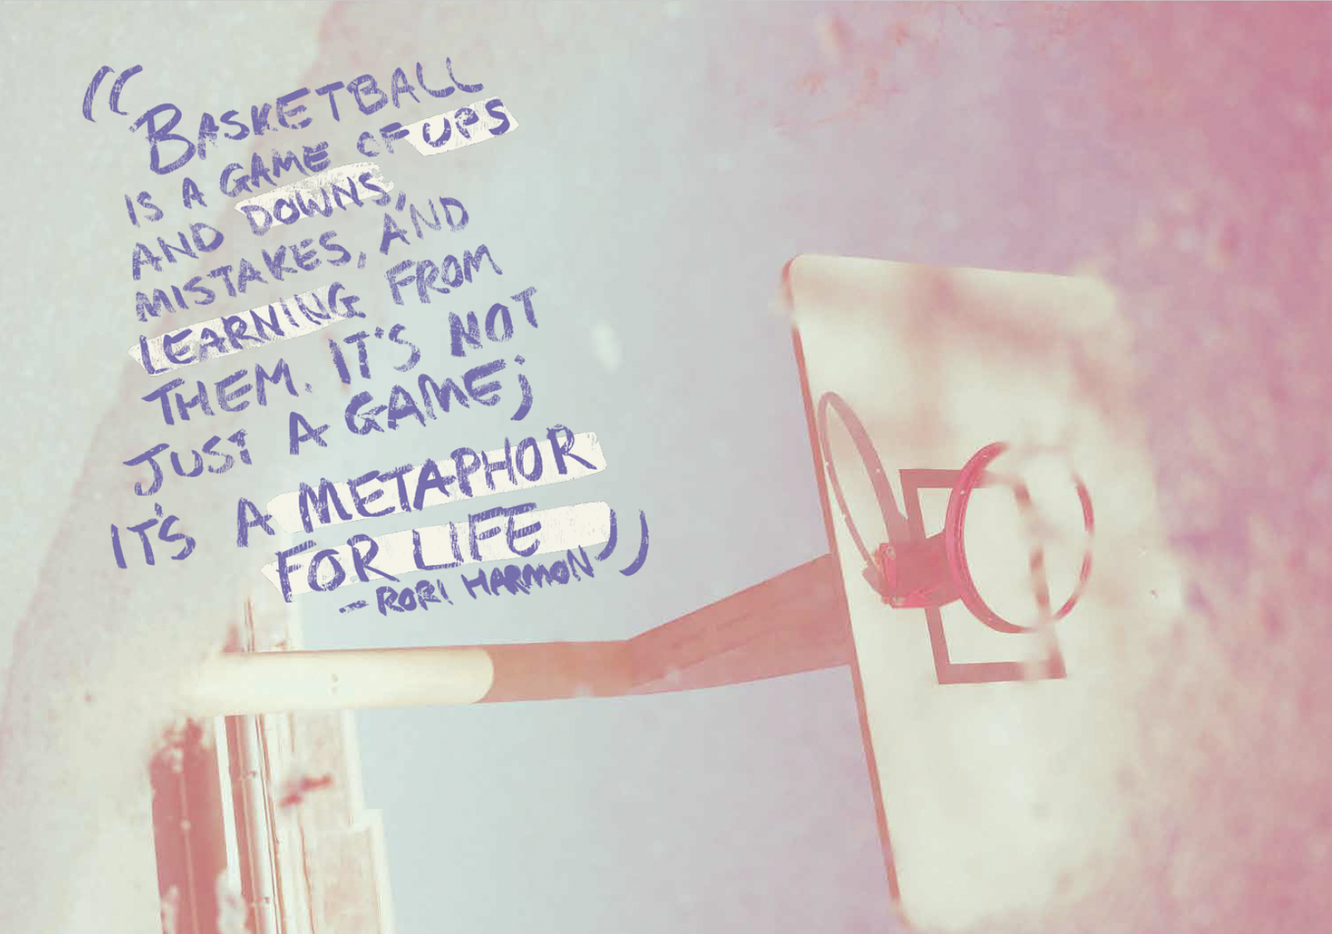 “BASKETBALL
IS A GAME OF UPS
AND DOWNS,
MISTAKES, AND
LEARNING FROM
THEM. IT'S NOT
JUST A GAME;
IT'S A METAPHOR
FOR LIFE”
- RORI HARMON